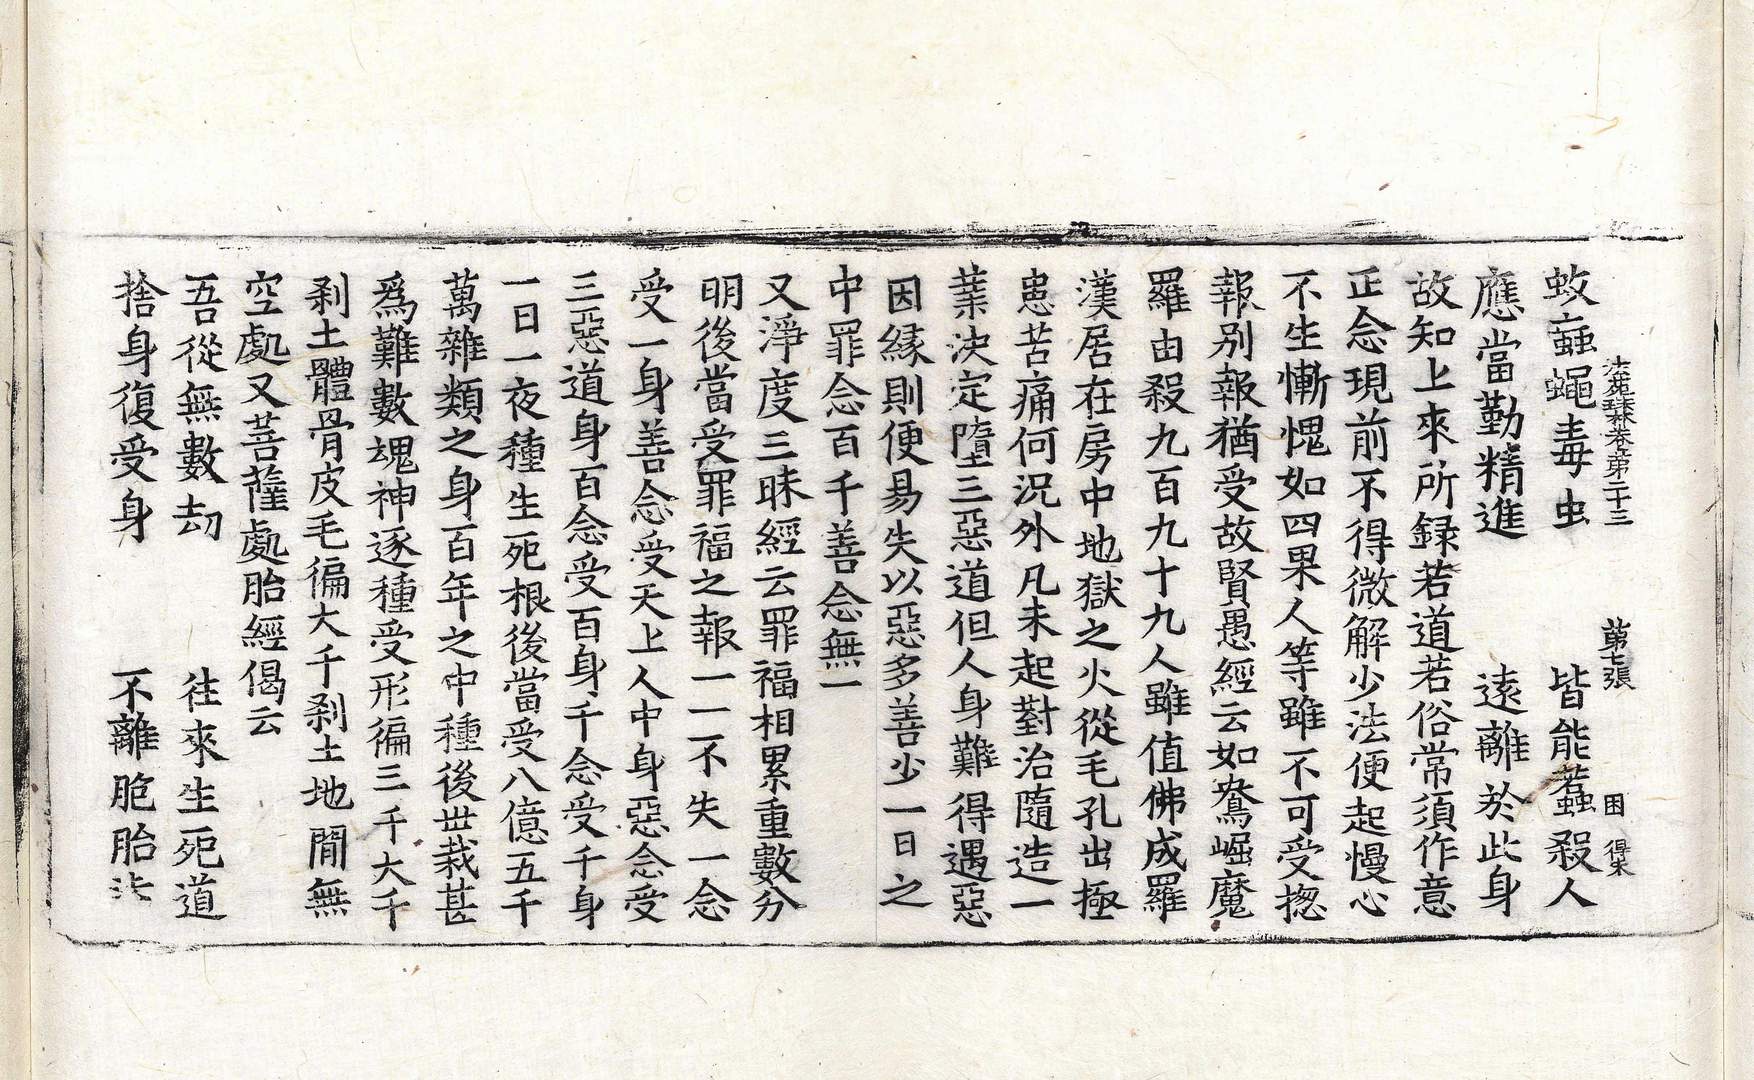 蚊蝱蠅毒虫　皆能螫殺人
法苑珠林卷第二十三　第七張　困　得宋
應當勤精進　遠離於此身
故知上來所録若道若俗常須作意
正念現前不得微解少法便起慢心
不生慚愧如四果人等雖不可受揔
報别報猶受故賢愚經云如鴦崛魔
羅由殺九百九十九人雖值佛成羅
漢居在房中地獄之火從毛孔出極
患苦痛何況外凡未起對治隨造一
業決定墮三惡道但人身難得遇惡
因縁則便易失以惡多善少一日之
中罪念百千善念無一
又淨度三昧經云罪福相累重數分
明後當受罪福之報一一不失一念
受一身善念受天上人中身惡念受
三惡道身百念受百身千念受千身
一日一夜種生死根後當受八億五千
萬雜類之身百年之中種後世栽甚
爲難數魂神逐種受形徧三千大千
刹土體骨皮毛徧大千刹土地閒無
空處又菩薩處胎經偈云
吾從無數劫　往來生死道
捨身復受身　不離胞胎法